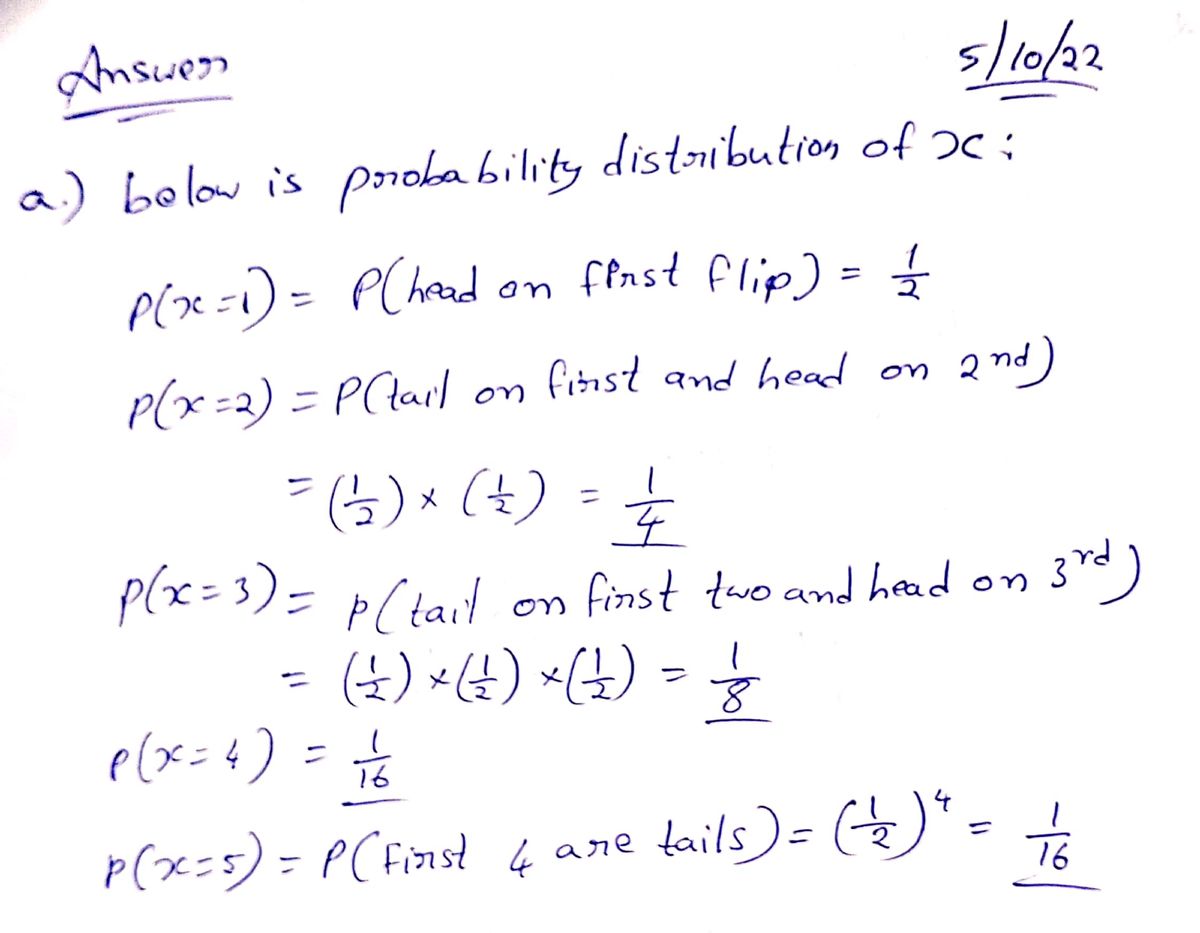 Answer
5/10/22
a.) below is probability distribution of x:
P(x=1) = P(head on first flip) = 1/2
P(x=2) = P(tail on first and head on 2nd)
= (1/2) × (1/2) = 1/4
P(x=3) = P(tail on first two and head on 3rd)
= (1/2) × (1/2) × (1/2) = 1/8
P(x=4) = 1/16
P(x=5) = P(First 4 are tails) = (1/2)⁴ = 1/16